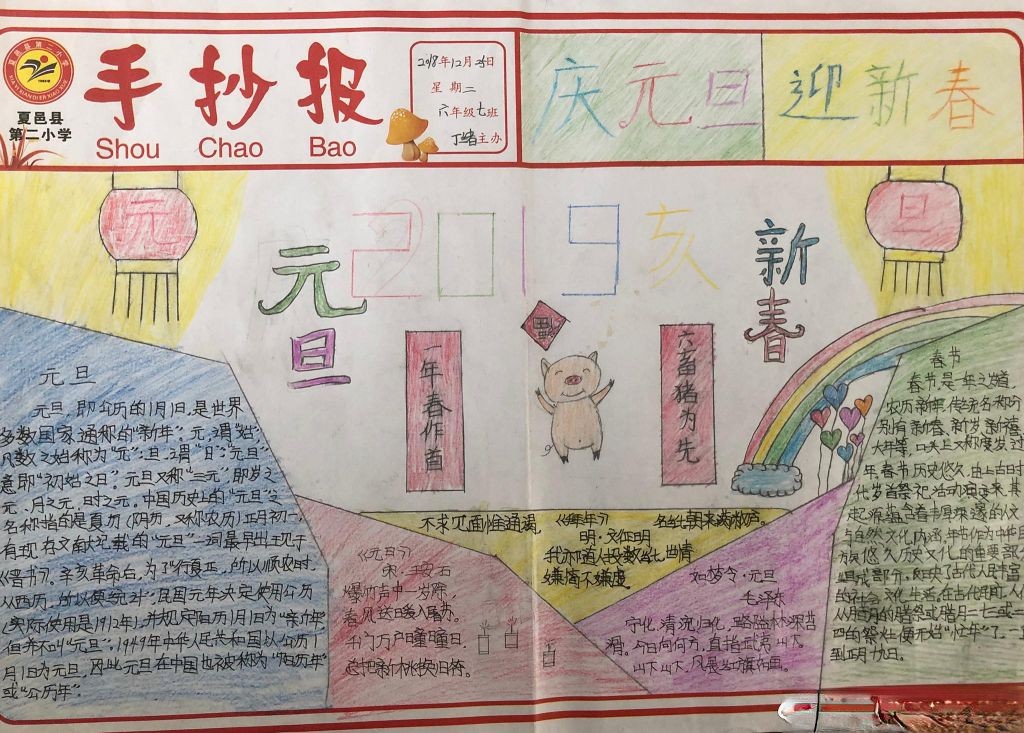 夏邑县
第二小学
手抄报
Shou Chao Bao
2018年12月25日
星期二
六年级七班
主办
庆元旦
迎新春
元
旦
元旦
2019亥
新春
福
一年春作首
六畜猪为先
元旦
元旦,即公历的1月1日,是世界
多数国家通称的“新年”。元,谓“始”,
凡数之始称为“元”;旦,谓“日”;“元旦”
意即“初始之日”。元旦又称“三元”,即岁之
元、月之元、时之元。中国历史上的“元旦”之
名称指的是夏历(阴历,又称农历)正月初一
有现在文献记载的“元旦”一词最早出现于
《晋书》。辛亥革命后,为了“行夏正,所以顺农时,
从西历,所以便统计”,民国元年决定使用公历
(实际使用是1912年),并规定阳历1月1日为“新年”
但并不叫“元旦”。1949年中华人民共和国以公历1
月1日为元旦,因此元旦在中国也被称为“阳历年”
或“公历年”。
《元旦》
宋·王安石
爆竹声中一岁除,
春风送日暖入屠苏。
千门万户曈曈日,
总把新桃换旧符。
不求见面惟通谒,
名纸朝来满敝庐。
《拜年》
明·文征明
我亦随人投数纸,世情
嫌简不嫌虚
如梦令·元旦
毛泽东
宁化、清流、归化,路隘林深苔
滑。今日向何方,直指武夷山下。
山下山下,风展红旗如画。
春节
春节是一年之岁首,
农历新年,传统名称分
别有新春、新岁、新禧、
大年等,口头上又称度岁、过
年。春节历史悠久,由上古时
代岁首祭祀活动演变来,其
起源蕴含着
自然与文化内涵,年节作为中华民
族悠久历史文化的重要部
组成部分,反映了古代人民丰富
的社会文化生活。在古代民间,人们
从月的腊祭或腊月二十三或二十
四的祭灶便开始“忙年”了,
到正月十九日。